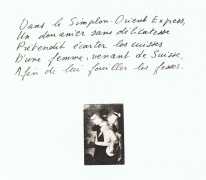 Dans le Simplon-Orient Express,
Un douanier sans délicatesse
Prétendit écarter les cuisses
D'une femme, venant de Suisse,
Afin de lui fouiller les fesses.